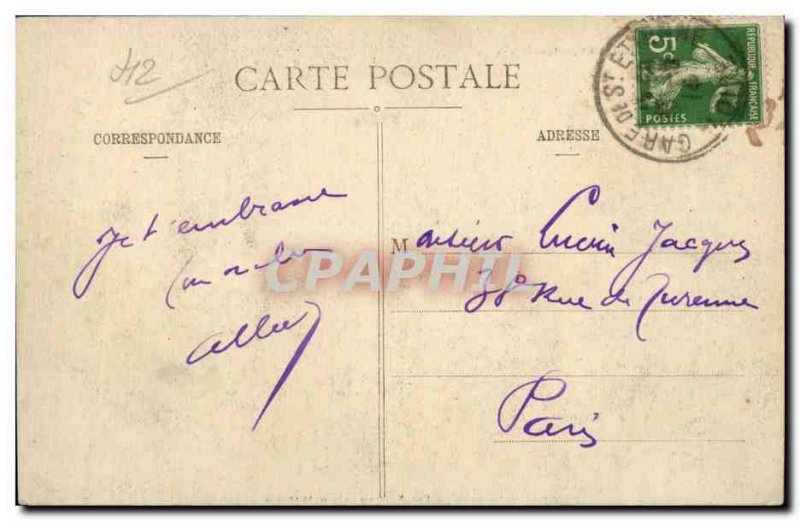 412
CARTE POSTALE
CORRESPONDANCE
ADRESSE
RÉPUBLIQUE FRANÇAISE
5c
POSTES
GARE DE ST ÉTIENNE
Je t'embrasse
Monsieur Lucien Jacques
38 Rue de Turenne
Paris
CPAPHIL